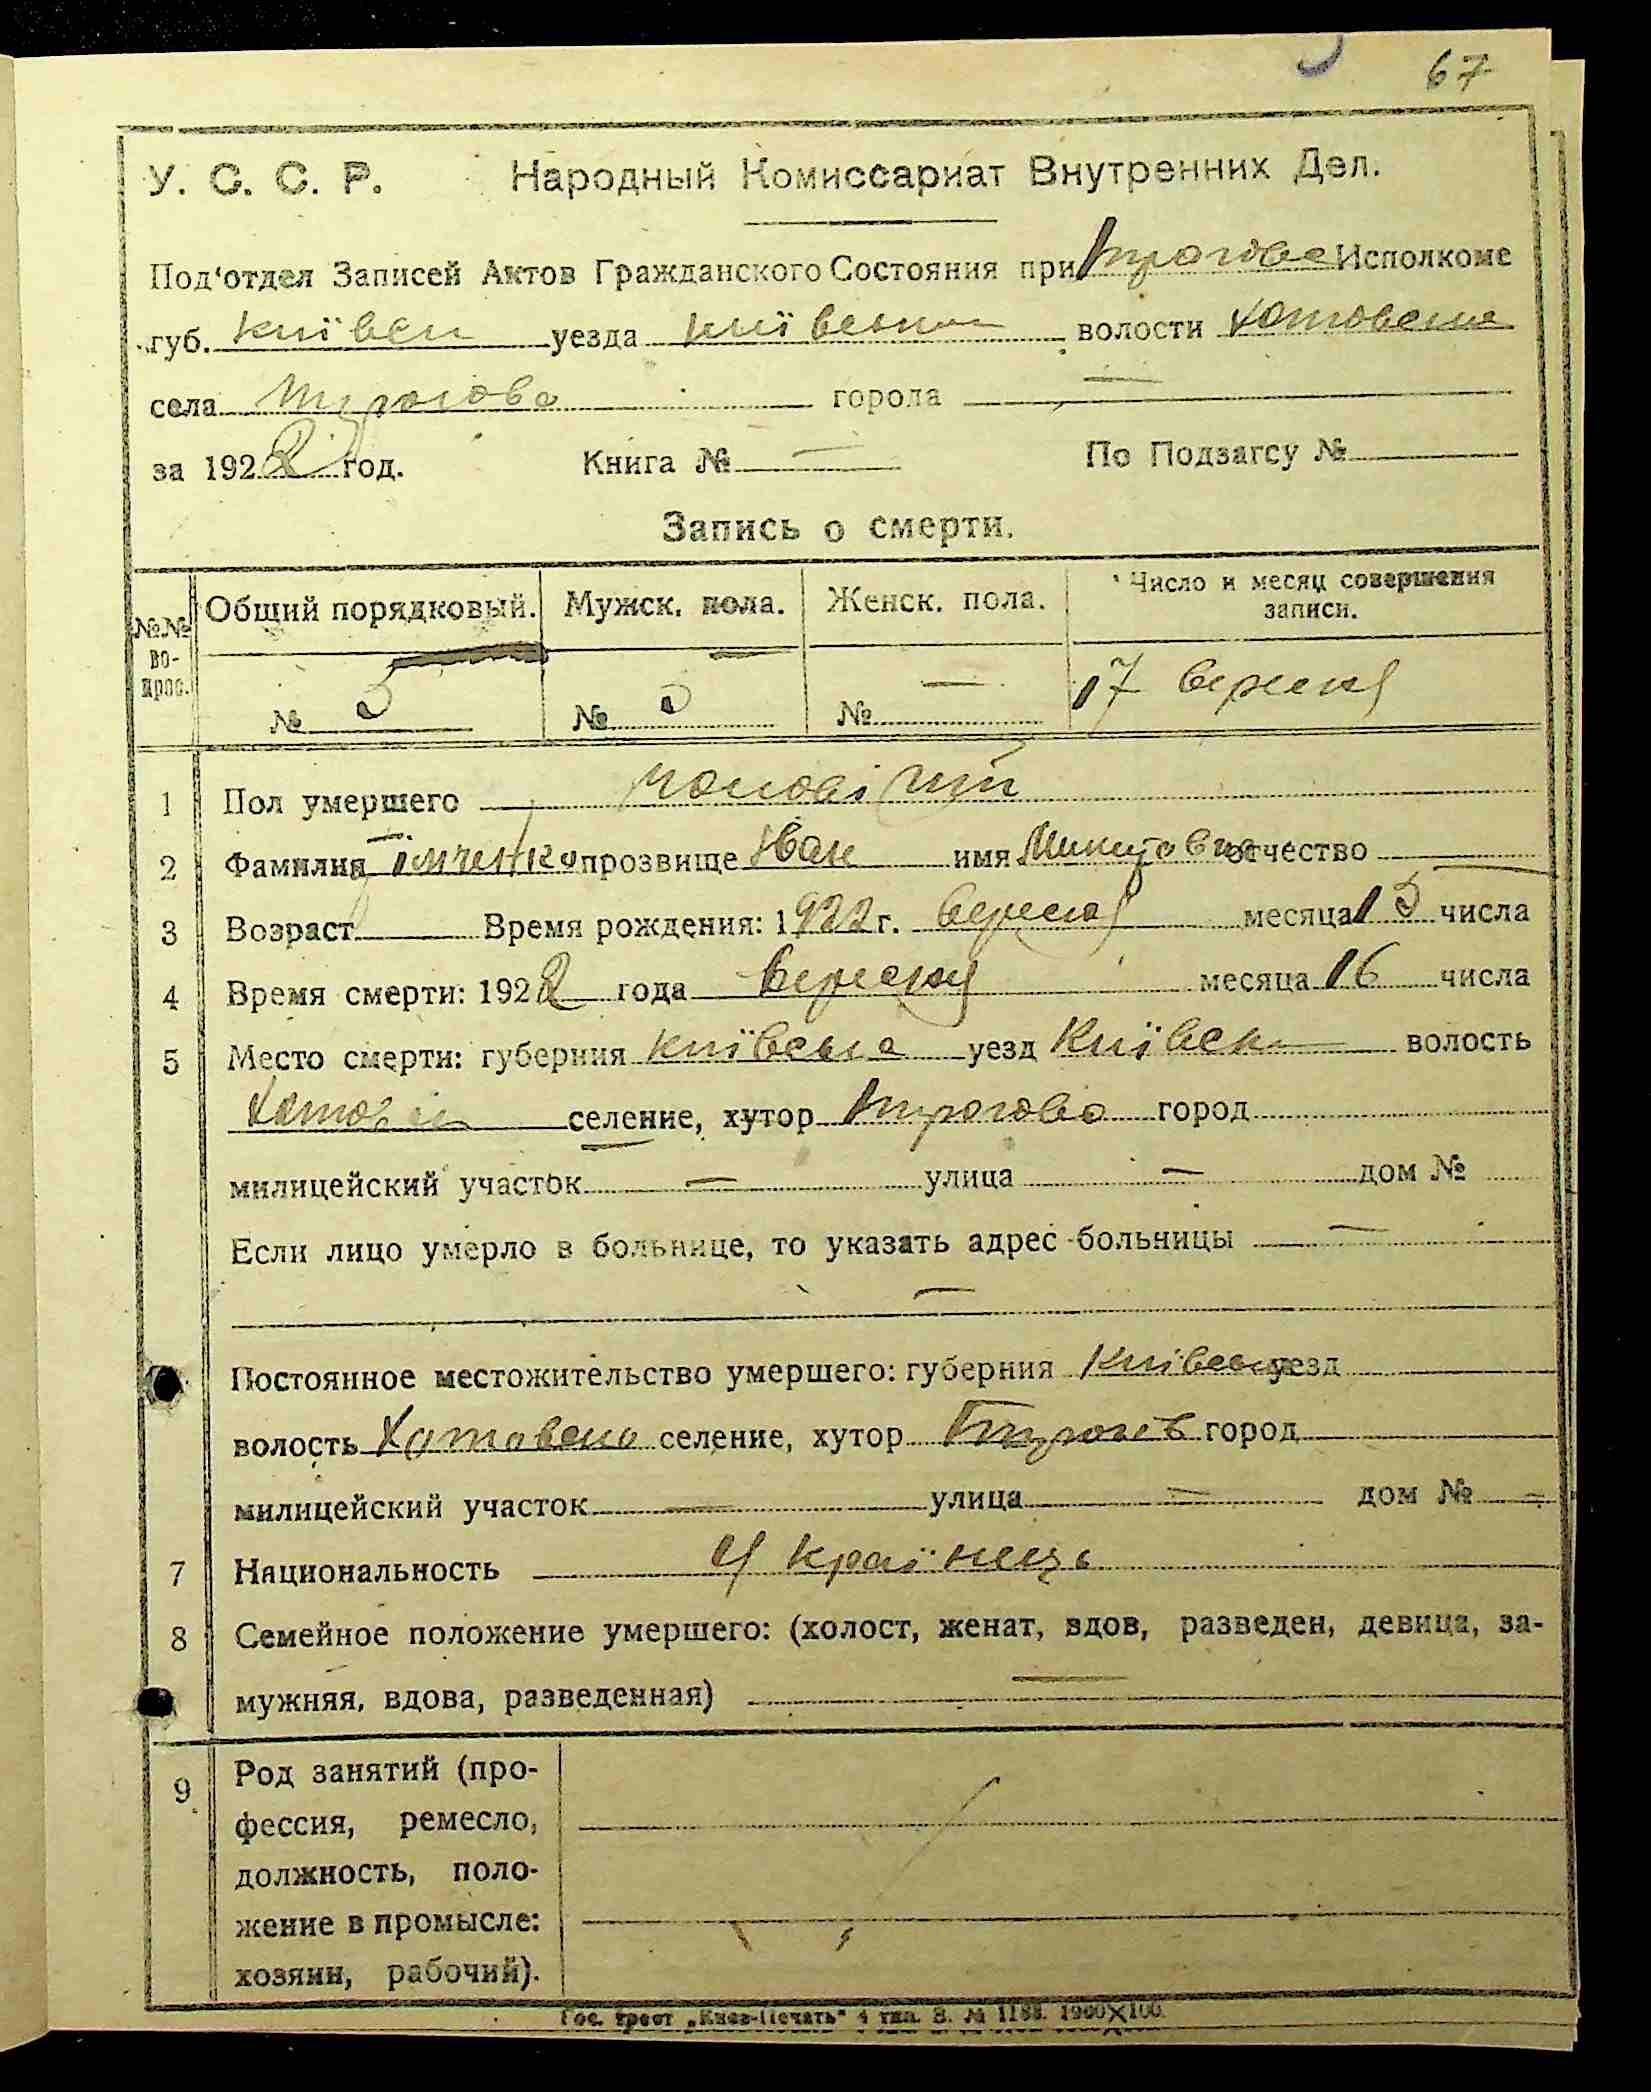 67
У. С. С. Р. Народный Комиссариат Внутренних Дел.
Под'отдел Записей Актов Гражданского Состояния при Исполкоме
губ. уезда волости
села города —
за 1922 год. Книга № — По Подзагсу №
Запись о смерти.
№№ вопрос. Общий порядковый. Мужск. пола. Женск. пола. Число и месяц совершения записи.
№ 5 № 5 № — 17 вересня
1 Пол умершего чоловічий
2 Фамилия прозвище Іван имя отчество
3 Возраст Время рождения: 1922 г. вересня месяца 15 числа
4 Время смерти: 1922 года вересня месяца 16 числа
5 Место смерти: губерния Київська уезд Київськ волость
селение, хутор город
милицейский участок — улица — дом №
Если лицо умерло в больнице, то указать адрес больницы —
—
Постоянное местожительство умершего: губерния Київська уезд
волость селение, хутор город
милицейский участок — улица — дом № –
7 Национальность Українець
8 Семейное положение умершего: (холост, женат, вдов, разведен, девица, за-
мужняя, вдова, разведенная) —
9 Род занятий (про-
фессия, ремесло,
должность, поло-
жение в промысле:
хозяин, рабочий).
Гос. трест „Киев-Печать" 4 тип. З. № 1188. 1900×100.